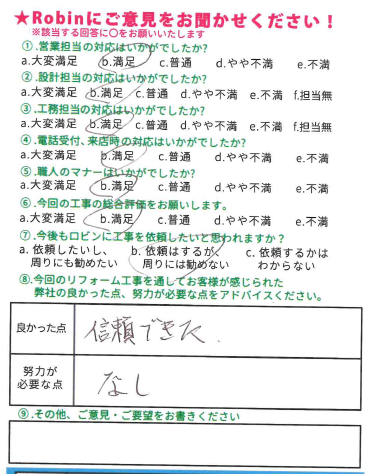 ★Robinにご意見をお聞かせください！
※該当する回答に〇をお願いいたします
①.営業担当の対応はいかがでしたか?
a.大変満足 b.満足 c.普通 d.やや不満 e.不満
②.設計担当の対応はいかがでしたか?
a.大変満足 b.満足 c.普通 d.やや不満 e.不満 f.担当無
③.工務担当の対応はいかがでしたか?
a.大変満足 b.満足 c.普通 d.やや不満 e.不満 f.担当無
④.電話受付、来店時の対応はいかがでしたか?
a.大変満足 b.満足 c.普通 d.やや不満 e.不満
⑤.職人のマナーはいかがでしたか?
a.大変満足 b.満足 c.普通 d.やや不満 e.不満
⑥.今回の工事の総合評価をお願いします。
a.大変満足 b.満足 c.普通 d.やや不満 e.不満
⑦.今後もロビンに工事を依頼したいと思われますか？
a. 依頼したいし、 b. 依頼はするが、 c. 依頼するかは
周りにも勧めたい 周りには勧めない わからない
⑧.今回のリフォーム工事を通してお客様が感じられた
弊社の良かった点、努力が必要な点をアドバイスください。
良かった点 信頼できた.
努力が
必要な点 なし
⑨.その他、ご意見・ご要望をお書きください